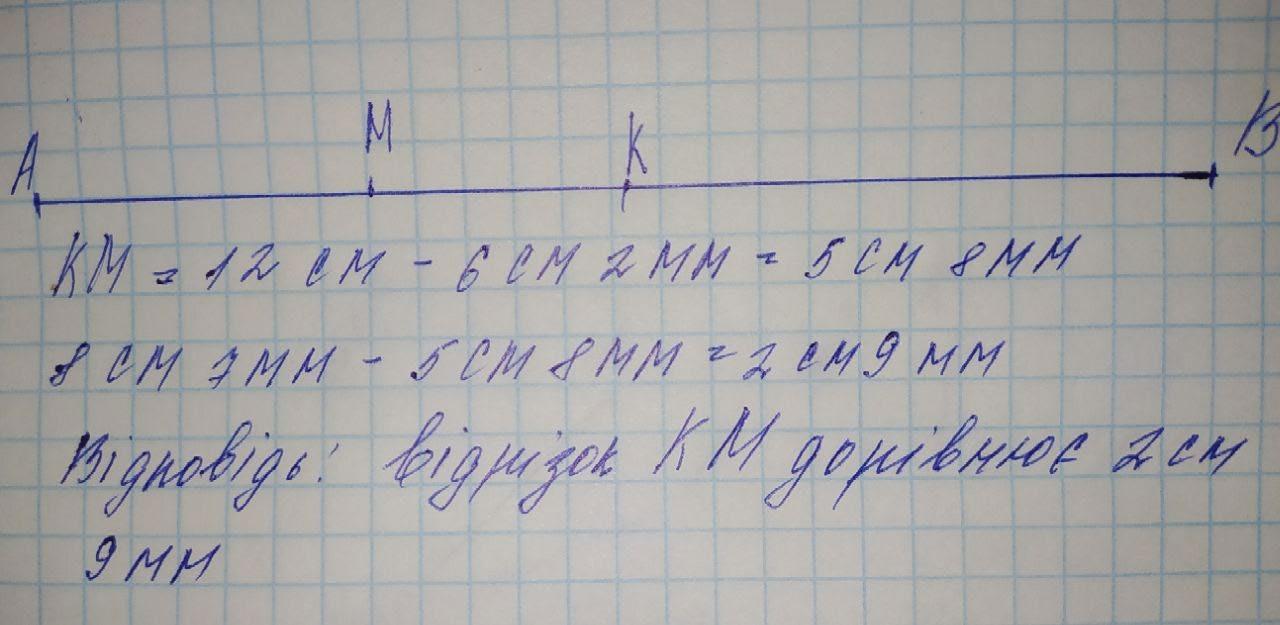 А М К В
КМ = 12 см - 6 см 2 мм = 5 см 8 мм
8 см 7 мм - 5 см 8 мм = 2 см 9 мм
Відповідь: відрізок КМ дорівнює 2 см
9 мм